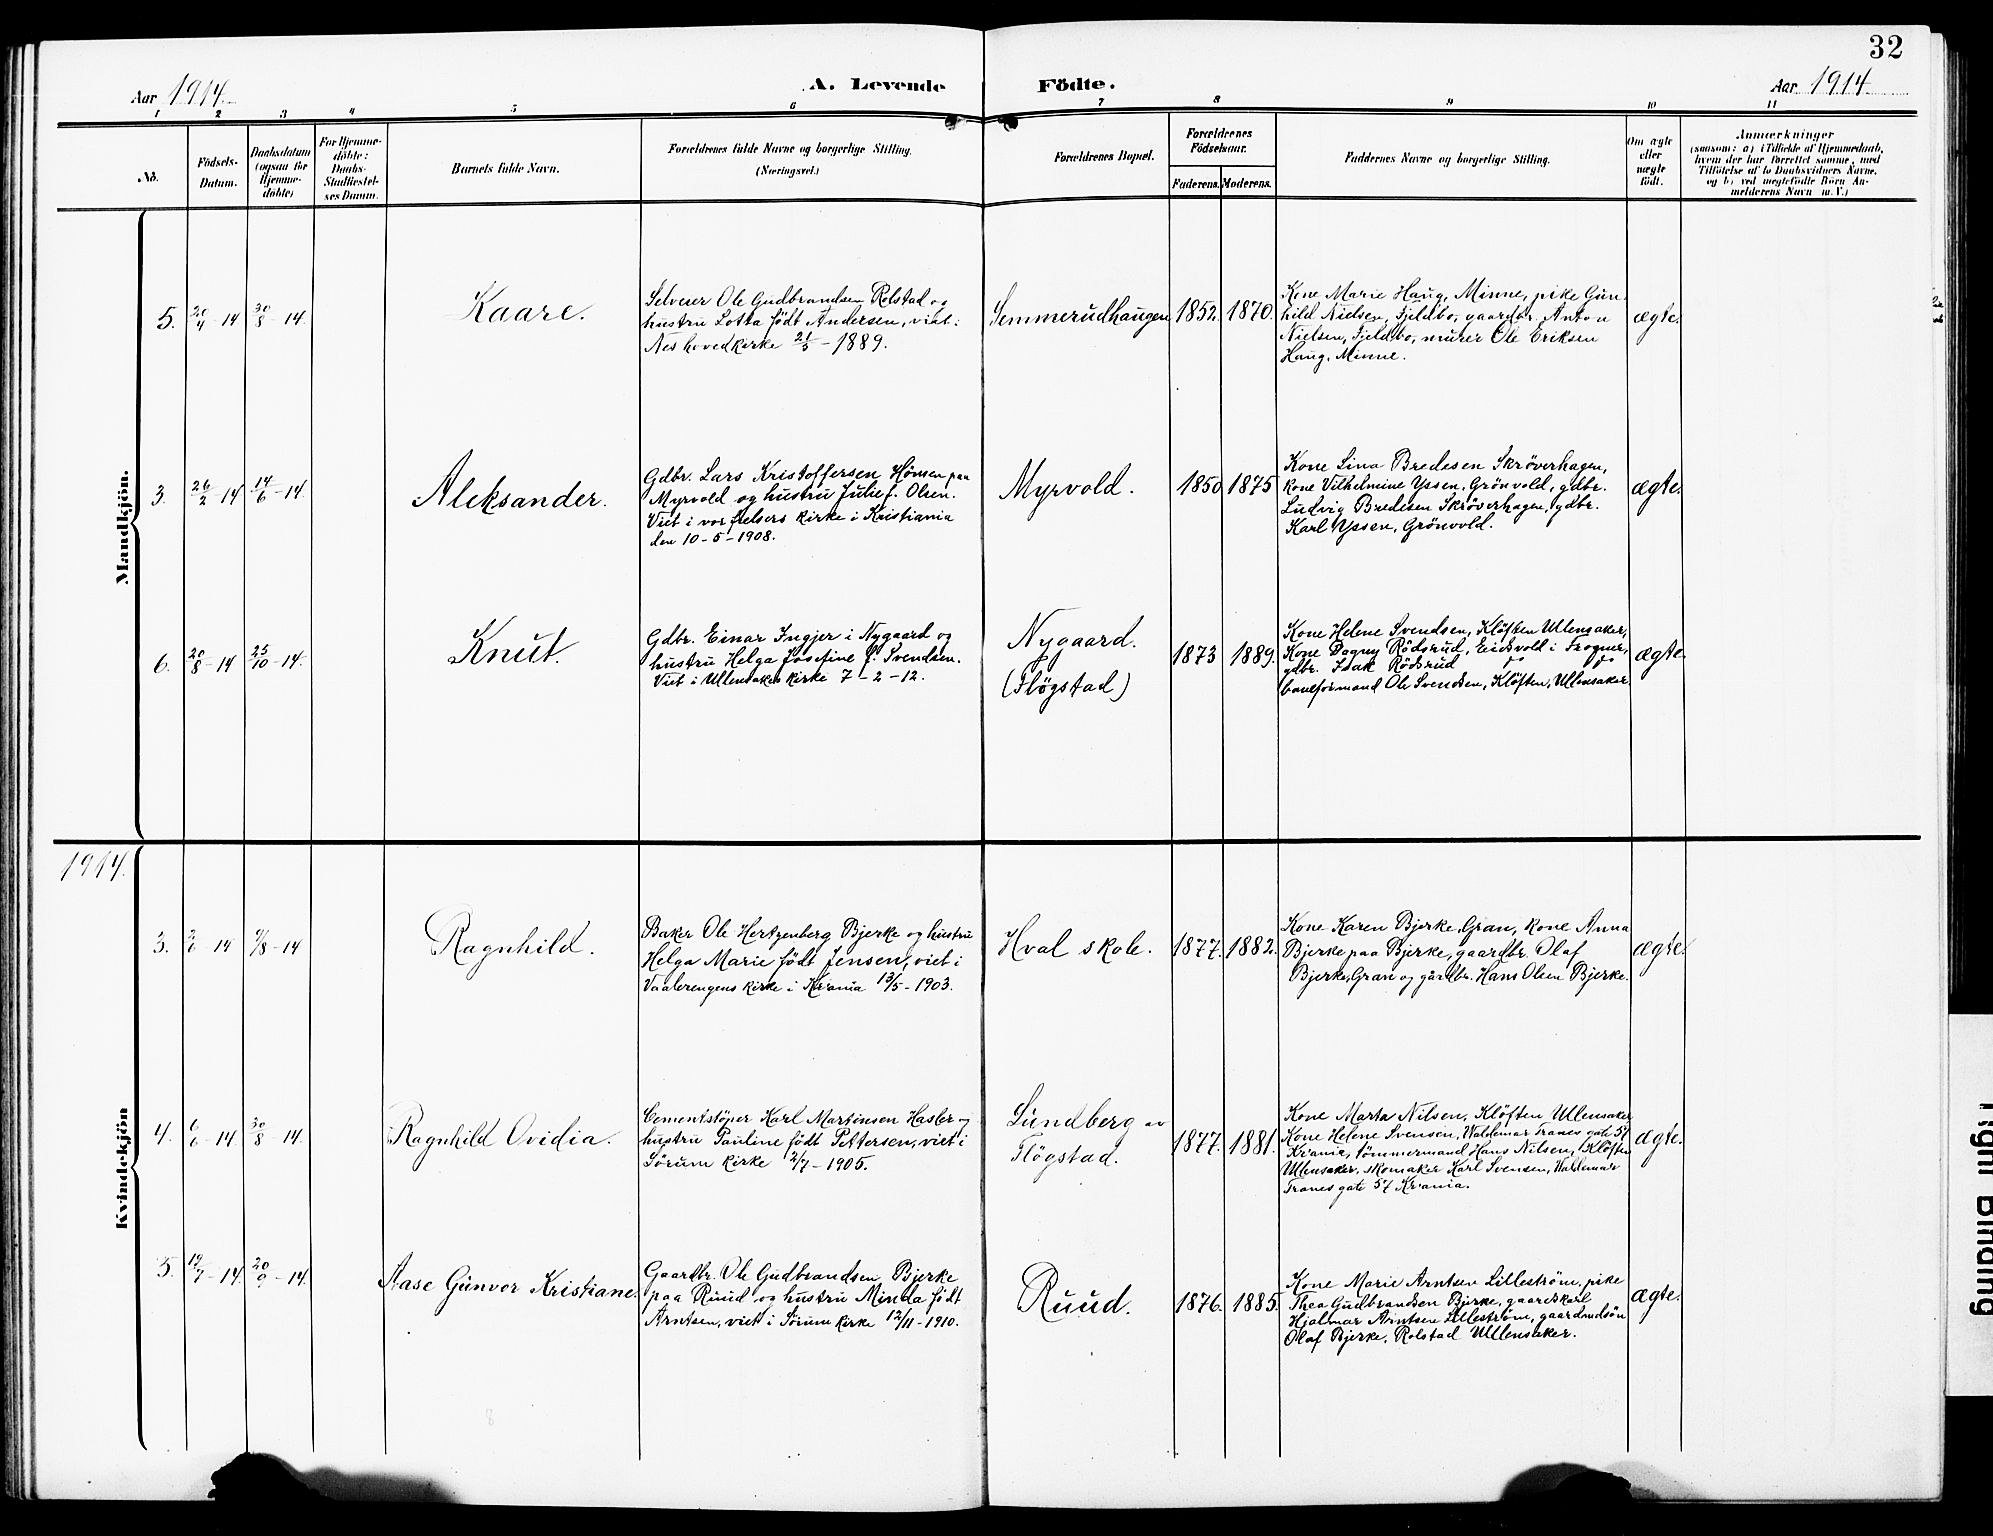 32
Aar 1914.
A. Levende
Födte.
Aar 1914.
1 2 3 4 5 6 7 8 9 10 11
No.
Födsels-
Datum.
Daabsdatum
(ogsaa for
Hjemme-
döbte)
For Hjemme-
döbte:
Daabs-
Stadfæstel-
ses Datum.
Barnets fulde Navn.
Forældrenes fulde Navne og borgerlige Stilling.
(Næringsvei.)
Forældrenes Bopæl.
Forældrenes
Födselsaar.
Faderens.
Moderens.
Faddernes Navne og borgerlige Stilling.
Om ægte
eller
uægte
födt.
Anmærkninger
(saasom: a) i Tilfælde af Hjemmedaab,
hvem der har forrettet samme, med
Tilföielse af to Daabsvidners Navne,
og b) ved uægtefödte Börn An-
melderens Navn m. V.)
Mandkjön.
5.
20/4 - 14
30/8 - 14.
Kaare.
Selveier Ole Gudbrandsen Rolstad og
hustru Lotta født Andersen, viet i
Nes hovedkirke 21/5 - 1889.
Semmerudhaugen
1852.
1870.
Kone Marie Haug, Minne, pike Gun-
hild Nielsen, Fjeldbo, gaardbr. Anton
Nielsen, Fjeldbo, murer Ole Eriksen
Haug, Minne.
ægte.
3.
26/2 - 14
14/6 - 14.
Aleksander.
Gdbr. Lars Kristoffersen Hønsen paa
Myrvold og hustru Julie f. Olsen.
Viet i vor frelsers kirke i Kristiania
den 10 - 5 - 1908.
Myrvold.
1850
1875
Kone Lina Bredesen Skrøverhagen,
kone Vilhelmine Yssen, Grönvold, gdbr.
Ludvig Bredesen Skrøverhagen, gdbr.
Karl Yssen, Grönvold.
ægte.
6.
20/8 - 14
25/10 - 14.
Knut.
Gdbr. Einar Ingjer i Nygaard og
hustru Helga Josefine f. Svendsen.
Viet i Ullensaker kirke 7 - 2 - 12.
Nygaard.
(Fløgstad)
1873
1889.
Kone Helene Svendsen, Kløften Ullensaker,
Kone Dagny Rödsrud, Eidsvold i Trogner,
gdbr. Isak Rödsrud do do
baneformand Ole Svendsen, Kløften, Ullensaker.
ægte.
1914.
Kvindekjön
3.
- 14
9/8 - 14
Ragnhild.
Baker Ole Hertzenberg Bjerke og hustru
Helga Marie født Jensen, viet i
Vaalerengens kirke i Kr.ania 13/5 - 1903.
Hval skole.
1877.
1882.
Kone Karen Bjerke, Gran, kone Anna
Bjerke paa Bjerke, gaardbr. Olaf
Bjerke, Gran og gårdbr. Hans Olsen Bjerke.
ægte.
4.
6/6 - 14
30/8 - 14.
Ragnhild Ovidia.
Cementstøper Karl Martinsen Hasler og
hustru Pauline født Pettersen, viet i
Sørum kirke 2/7 - 1905.
Lundberg av
Fløgstad.
1877.
1881.
Kone Marta Nilsen, Kløften Ullensaker
Kone Helene Svensen, Waldemar Tranes gate 57
Kr.ania, tømmermand Hans Nilsen, Kløften
Ullensaker, skomaker Karl Svensen, Waldemar
Tranes gate 57 Kr.ania.
ægte.
5.
19/7 - 14.
20/9 - 14.
Aase Gunvor Kristiane.
Gaardbr. Ole Gudbrandsen Bjerke
paa Ruud og hustru Minda født
Arntsen, viet i Sørum kirke 12/11 - 1910.
Ruud.
1876.
1885.
Kone Marie Arntsen Lillestrøm, pike
Thea Gudbrandsen Bjerke, gaardskarl
Hjalmar Arntsen Lillestrøm, gaardmdsøn
Olaf Bjerke, Rolstad Ullensaker.
ægte.
Tight Binding